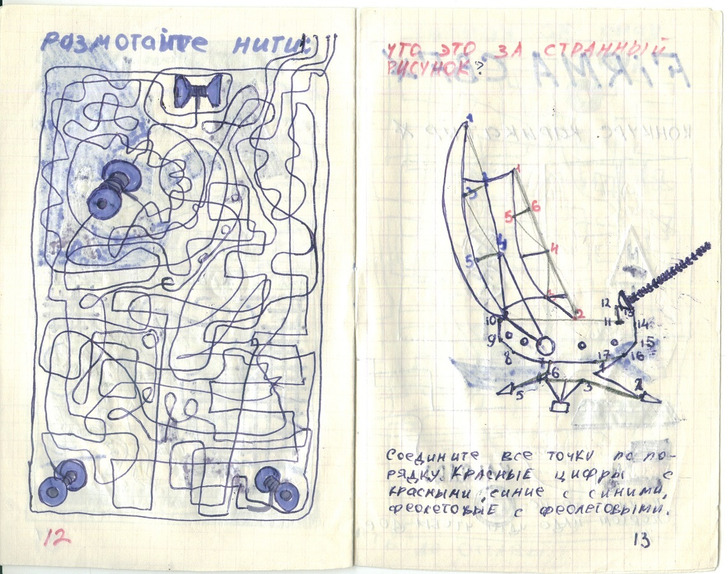 Розмотайте нити:
12
ЧТО ЭТО ЗА СТРАННЫЙ
РИСУНОК?
1
1
2
3
5
6
5
4
4
2
10
9
8
12
13
11
14
15
16
17
7
6
5
3
2
1
Соедините все точки по по-
рядку. Красные цифры с
красными, синие с синими,
феолетовые с феолетовыми.
13